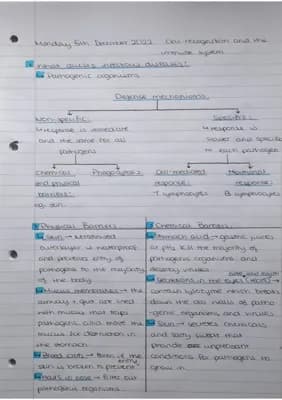 Monday 5th December 2022 Cell recognition and the
immune system
What causes infectious diseases?
Pathogenic organisms
Defense mechanisms
Non-specific: Specific:
response is immediate response is
and the same for all slower and specific
pathogens to each pathogen
Chemical Phagocytosis Cell-mediated Humoral
and physical response: response:
barriers: T lymphocytes B lymphocytes
eg. skin
Physical Barriers
Skin → keratinised
overlayer is waterproof
and prevents entry of
pathogens to the majority
of the body
Mucus membranes → the
airways + gut are lined
with mucus that traps
pathogens and move the
mucus for destruction in
the stomach
Blood clots → form if the
skin is broken to prevent entry
Hairs in nose → filter out
pathogenic organisms
Chemical Barriers
Stomach acid → gastric juices
at pH2 kill the majority of
pathogenic organisms and
destroy viruses
Secretions in the eyes (tears) →
contain lysozyme which breaks
down the cell walls of patho-
genic organisms and viruses
Skin → secretes chemicals
and salty sweat that
provide unpleasant
conditions for pathogens to
grow in